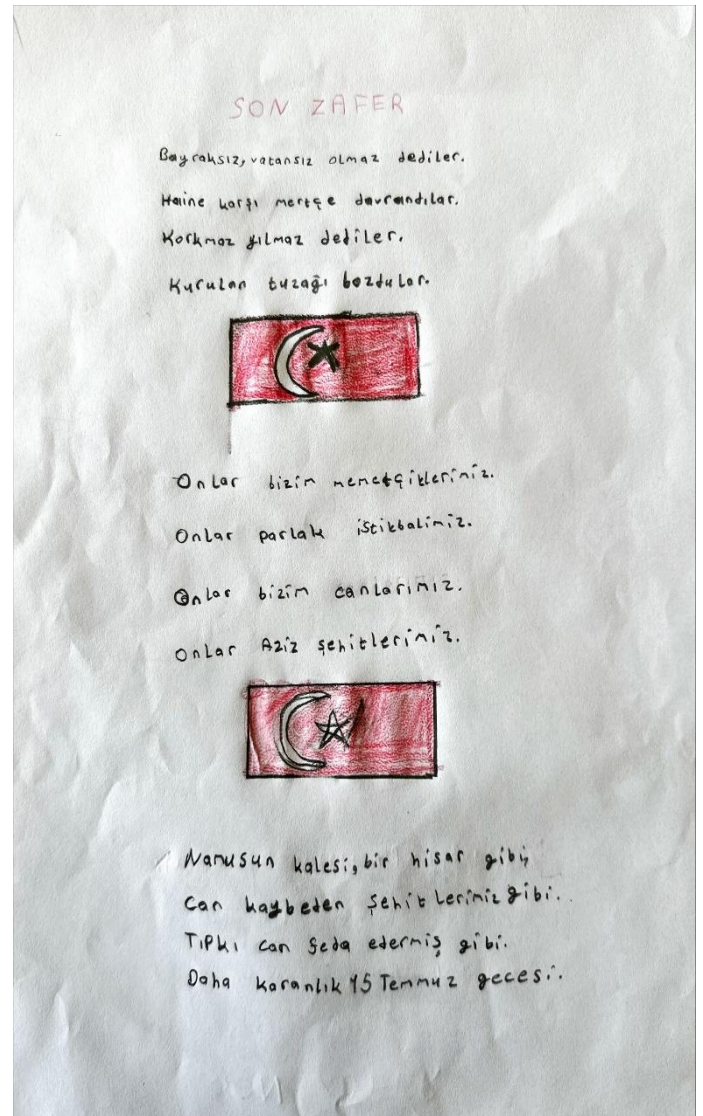 SON ZAFER
Bayraksız, vatansız olmaz dediler.
Haine karşı mertçe davrandılar.
Korkmaz yılmaz dediler.
Kurulan tuzağı bozdular.
Onlar bizim memetçiklerimiz.
Onlar parlak istikbalimiz.
Onlar bizim canlarımız.
Onlar Aziz şehitlerimiz.
Namusun kalesi, bir hisar gibi,
Can kaybeden şehitlerimiz gibi.
Tıpkı can feda edermiş gibi.
Daha karanlık 15 Temmuz gecesi.